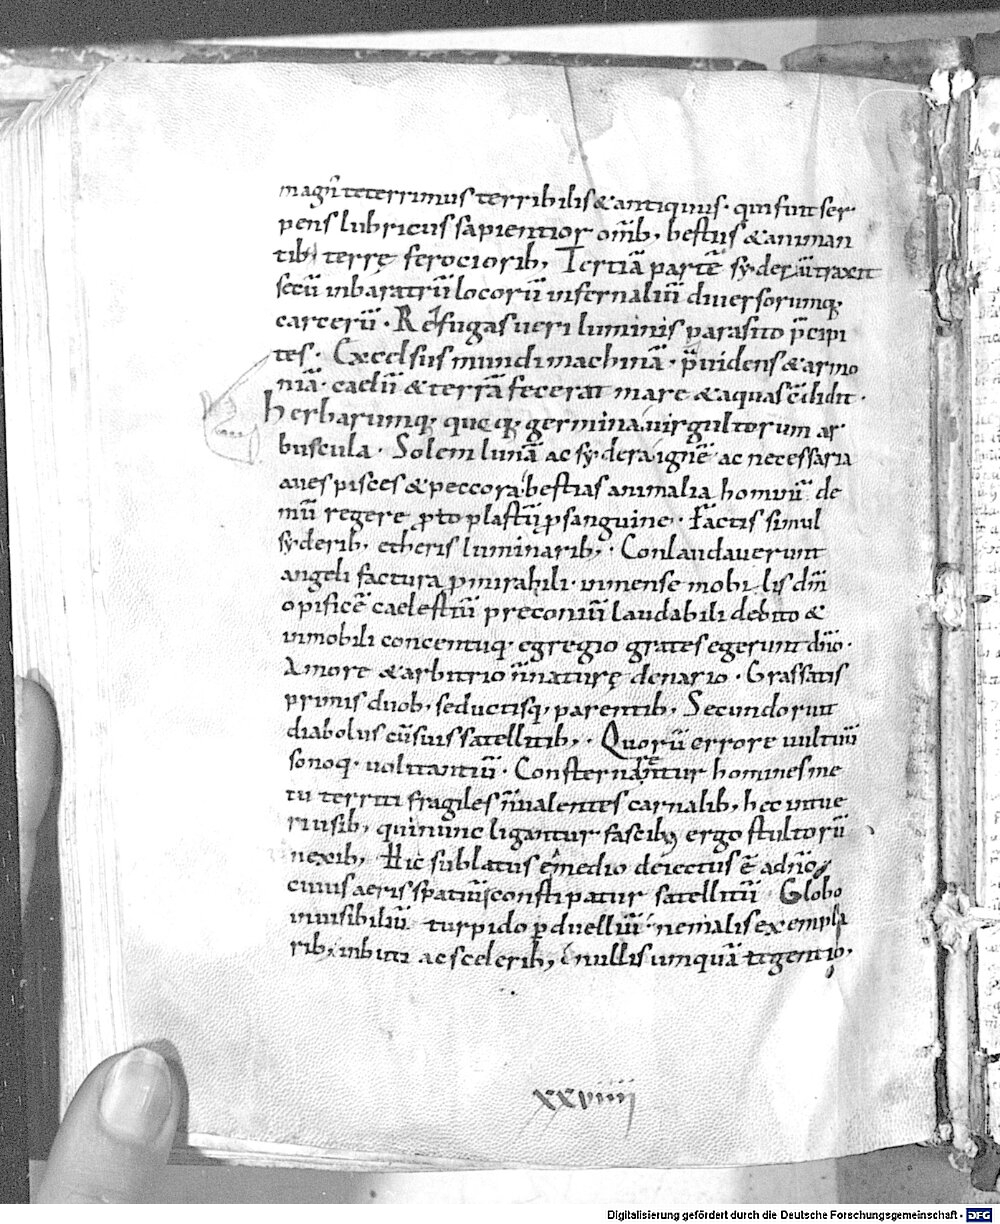 magn̄ teterrimus terribilis & antiquus · qui fuit ser
pens lubricus sapientior omīb; bestiis & animan
tib; terrę ferociorib; Tertiā partē syderū traxit
secū in baratrū locorū infernaliū diuersorumq;
carcerū · Refugas ueri luminis parasito p̄cipi
tes · Excelsus mundi machinā · p̄uidens & armo
niā · caelū & terrā fecerat mare & aquas cōdidit ·
herbarumq; queq; germina uirgultorum ar
buscula · Solem lunā ac sydera ignē ac necessaria
aues pisces & peccora bestias animalia hominū de
mū regere ꝓtoplastū p̄sanguine · Factis simul
syderib; etheris luminarib; · Conlaudauerunt
angeli factura p̄ mirabili · inmense mobilis dn̄m
opificē caelestiū preconiū laudabili debito &
inmobili concentuq; egregio grates egerunt dn̄o ·
Amore & arbitrio n̄ naturę denario · Grassatis
primis duob; seductisq; parentib; Secundo ruit
diabolus cū suis satellitib; · Quorū errore uultuū
sonoq; uolitantiū · Consternarentur homines me
tu territi fragiles n̄ ualentes carnalib; hec intue
ri uisib; qui nunc ligantur fascib; ergastulorū
nexib; Hic sublatus e medio deiectus ē a dn̄o
cuius aeris spatiū constipatur satellitū · Globo
inuisibiliū turpido ꝑduelliū · ne malis exempla
rib; inbuti ac scelerib; nullis umquā tegentib;
xxviiii
Digitalisierung gefördert durch die Deutsche Forschungsgemeinschaft - DFG